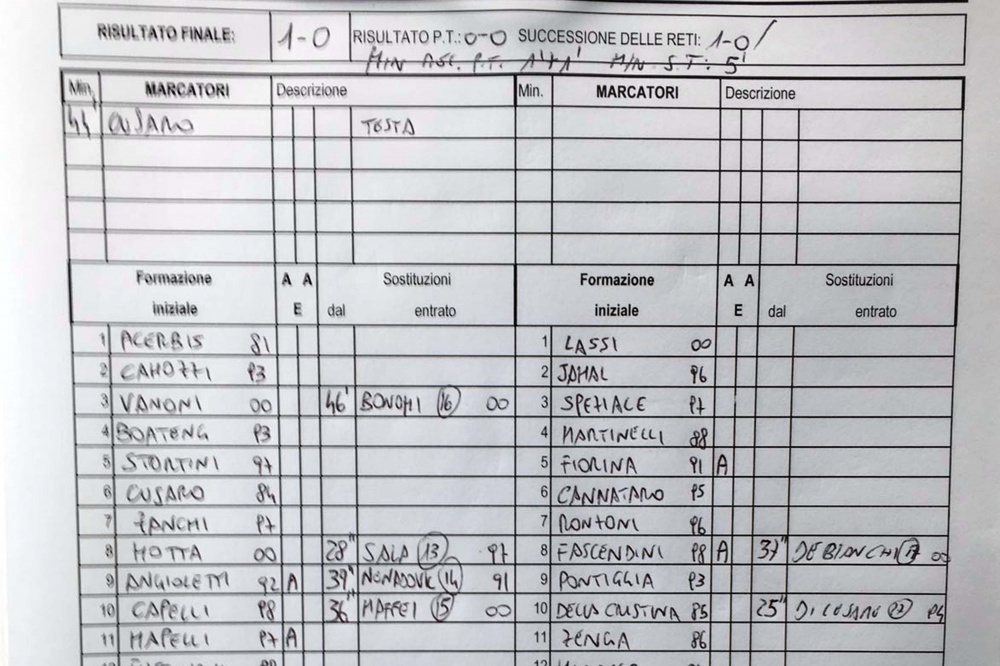 RISULTATO FINALE: 1-0 RISULTATO P.T.: 0-0 SUCCESSIONE DELLE RETI: 1-0/
MIN P.T. MIN S.T: 5'
Min. MARCATORI Descrizione Min. MARCATORI Descrizione
CUSARO TESTA
Formazione A A Sostituzioni Formazione A A Sostituzioni
iniziale E dal entrato iniziale E dal entrato
1 ACERBIS 81 1 LASSI 00
2 CAMOZZI 93 2 JAMAL 96
3 VANONI 00 46' BONOMI 16 00 3 SPEZIALE 97
4 BOATENG 93 4 MARTINELLI 88
5 STORTINI 97 5 FIORINA 91 A
6 CUSARO 84 6 CANNATARO 95
7 ZANCHI 97 7 RONZONI 96
8 MOTTA 00 28" SALA 13 97 8 FASCENDINI 98 A 37" DE BIANCHI 17 00
9 ANGIOLETTI 92 A 39" 14 91 9 PONTIGGIA 93
10 CAPELLI 98 36" MAFFEI 15 00 10 DELLA CRISTINA 85 25" DI LUSARO 94
11 MAPELLI 97 A 11 ZENGA 86
12